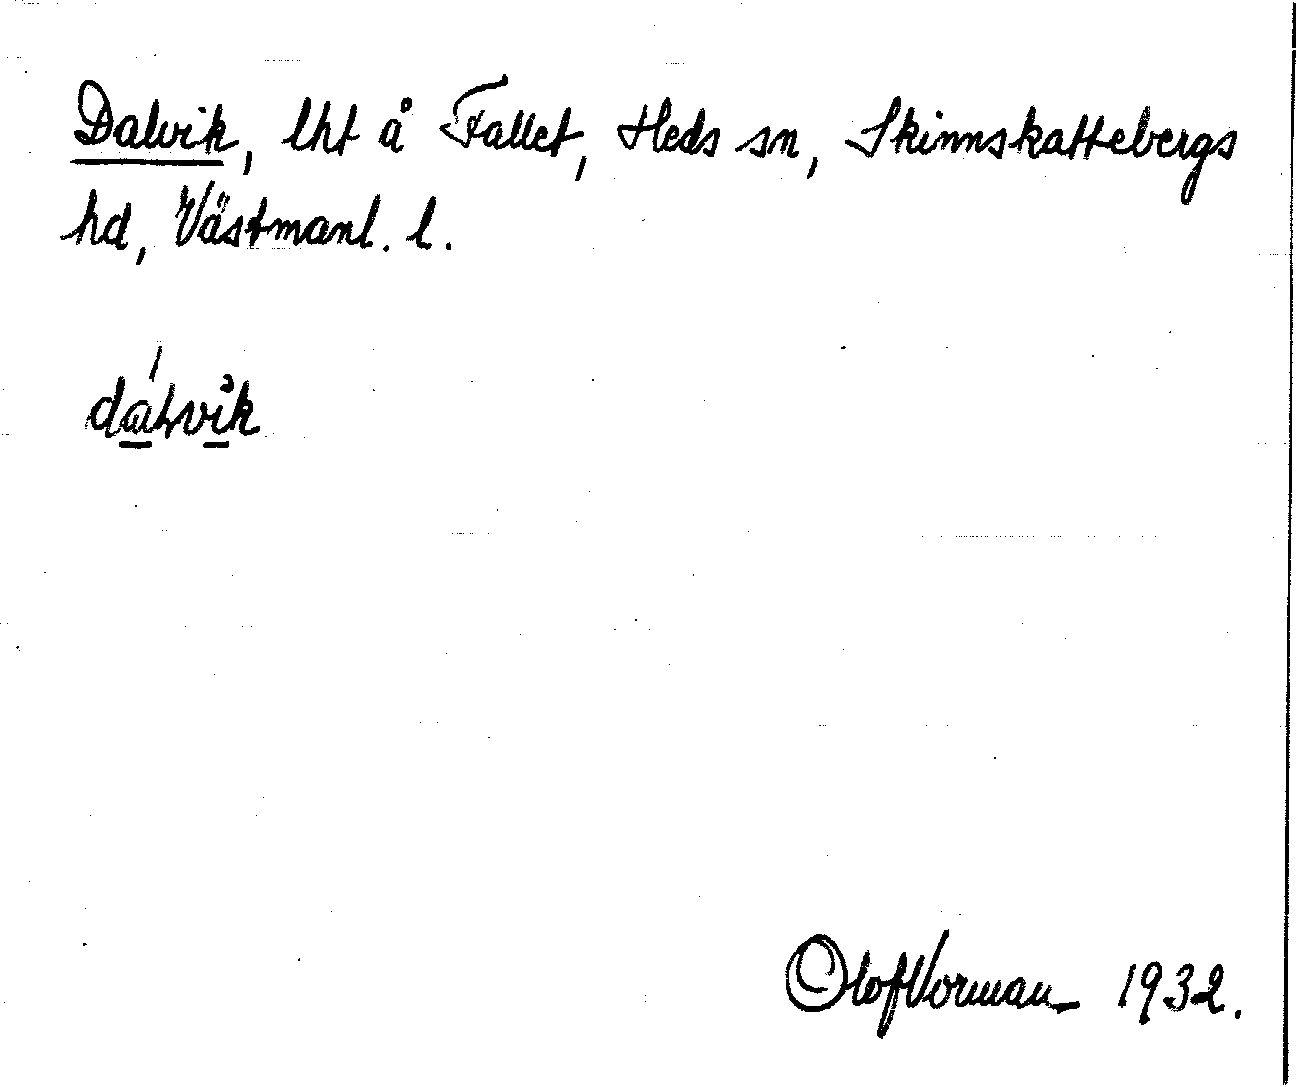 Dalvik, lht å Fallet, Heds sn, Skinnskattebergs
hd, Västmanl. l.
dalvik
Olof Vorman 1932.